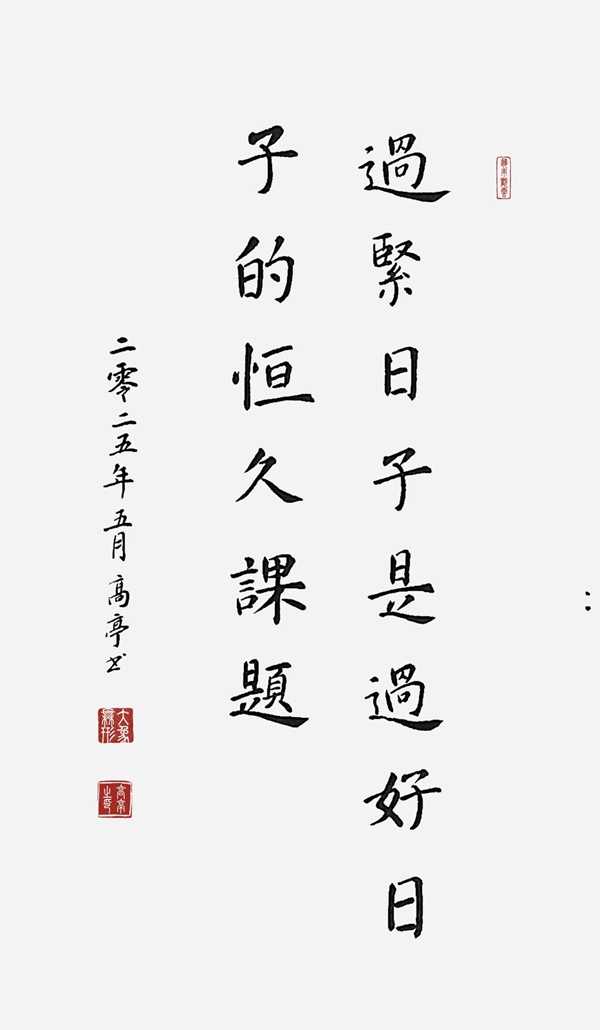 過緊日子是過好日
子的恒久課題
二零二五年五月高亭书
大象無形
高亭之印